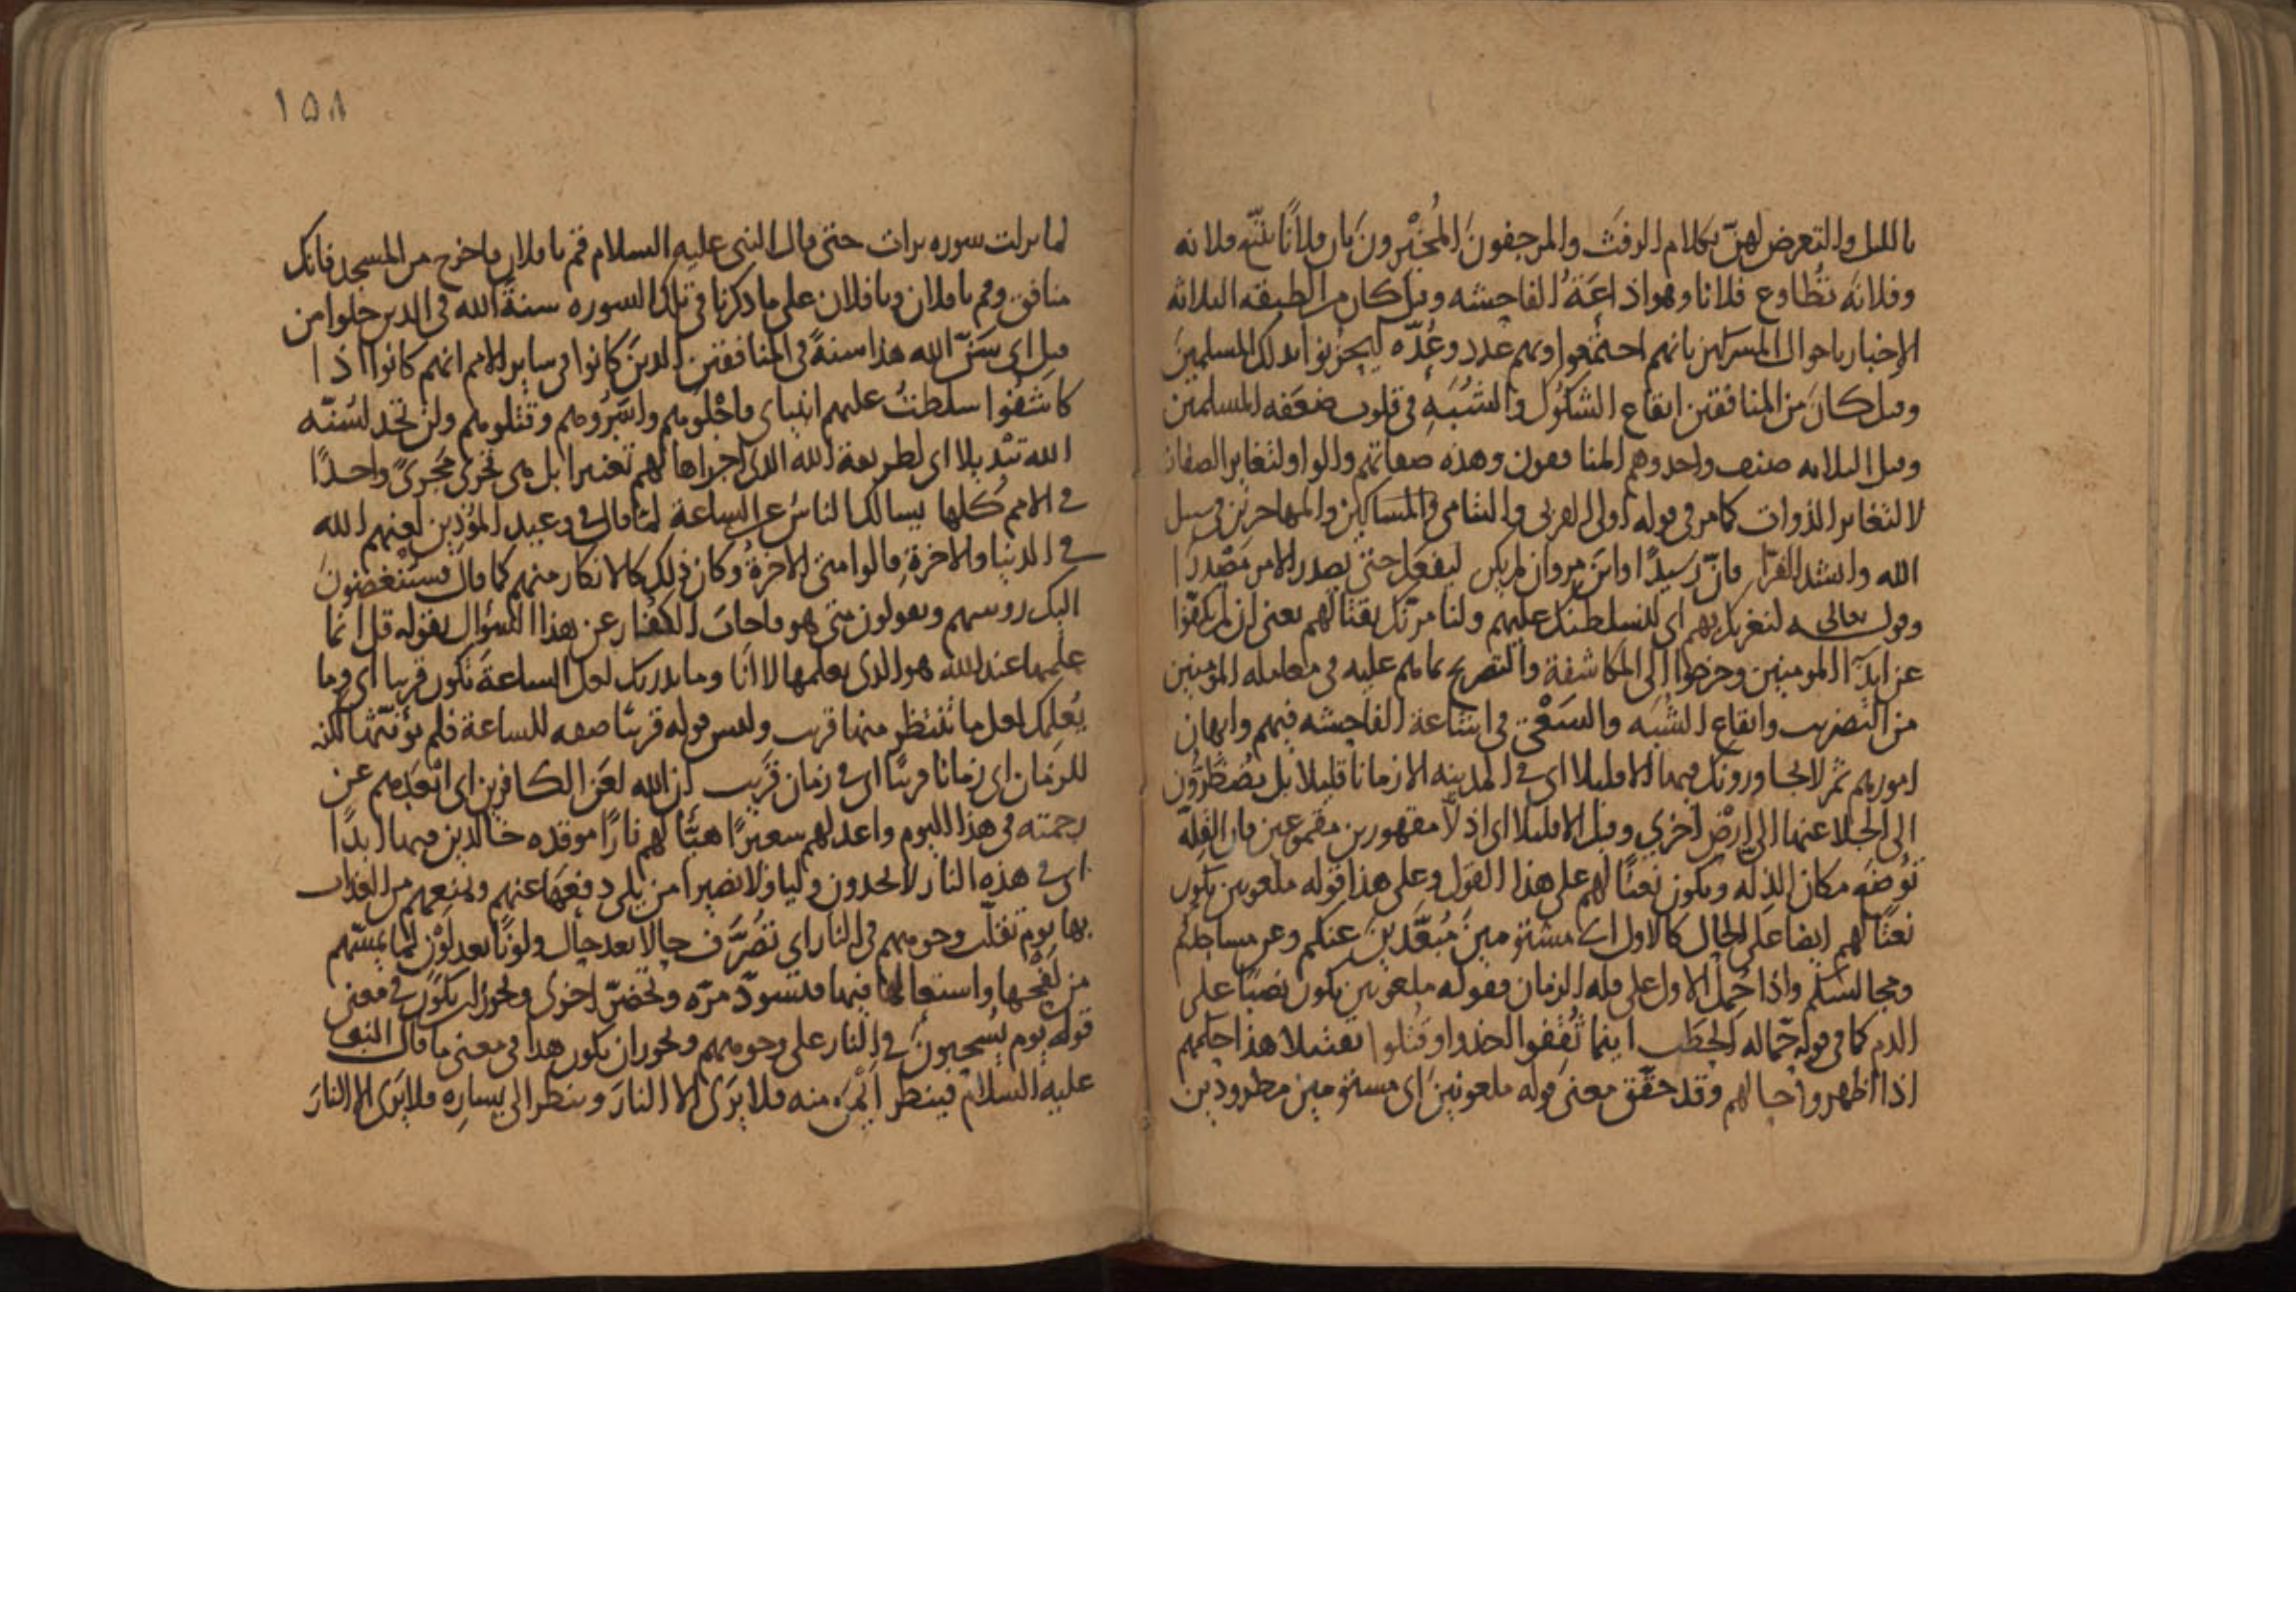 بالليل والتعرض لهن بكلام الرفث والمرجفون المخبرون بان فلانا يتبع فلانه
وفلانه تطاوع فلانا وهو اذاعة الفاحشه وقيل كان من الطبقه الثلاثه
الاخبار باحوال المشركين بانهم اجتمعوا ولهم عدد وعدة ليحزنوا بذلك المسلمين
وقيل كان من المنافقين ايقاع الشكوك والشبه في قلوب ضعفه المسلمين
وقيل الثلاثه صنف واحد وهم المنافقون وهذه صفاتهم والواو لتغاير الصفات
لا لتغاير الذوات كما مر في قوله اولى القربى واليتامى والمساكين والمهاجرين في سبيل
الله وانشد الفرا فان رشيدا وابن مروان لم يكن ليفعل حتى يصدر الامر مصدرا
وقوله تعالى لنغرينك بهم اي لنسلطنك عليهم ولنامرنك بقتالهم يعني ان لم يكفوا
عن ايذا المومنين وخرجوا الى المكاشفة والتصريح بما هم عليه في معامله المومنين
من التضريب وايقاع الشبه والسعى في اشاعة الفاحشه فيهم وايهان
امورهم ثم لا يجاورونك فيها الا قليلا اي في المدينه الا زمانا قليلا بل يضطرون
الى الجلا عنها الى ارض اخري وقيل الا قليلا اي اذلا مقهورين مقموعين فان القله
توضع مكان الذله ويكون نعتا لهم على هذا القول وعلى هذا قوله ملعونين يكون
نعتا لهم ايضا على الحال كالاول اي مشئومين مبعدين عنكم وعن مساجدكم
ومجالسكم واذا حمل الاول على قله الزمان فقوله ملعونين يكون نصبا على
الذم كما في قوله حماله الحطب اينما ثقفوا اخذوا وقتلوا تقتيلا هذا حكمهم
اذا اظهروا حالهم وقد حقق معنى قوله ملعونين اي مشئومين مطرودين
١٥٨
لما نزلت سوره برات حتى قال النبي عليه السلام قم يا فلان فاخرج من المسجد فانك
منافق وقم يا فلان ويا فلان على ما ذكرنا في تلك السوره سنة الله في الذين خلوا من
قبل اي سن الله هذا سنة في المنافقين الذين كانوا في ساير الامم انهم كانوا اذا
كاشفوا سلطت عليهم انبياى فاجلوهم واسروهم وقتلوهم ولن تجد لسنه
الله تبديلا اي لطريقة الله الذي اجراها لهم تغييرا بل هي تجري مجرى واحدا
في الامم كلها يسالك الناس عن الساعة لما قال في وعيد الموذين لعنهم الله
في الدنيا والاخرة قالوا متى الاخرة وكان ذلك كالانكار منهم كما قال فسينغضون
اليك روسهم ويقولون متى هو فاجاب الكفار عن هذا السؤال بقوله قل انما
علمها عند الله هو الذي يعلمها لا انا وما يدريك لعل الساعة تكون قريبا اي وما
يعلمك لعل ما ننتظر منها قريب وليس قوله قريبا صفه للساعة فلم يؤنثها لكنه
للزمان اي زمانا قريبا اي في زمان قريب ان الله لعن الكافرين اي ابعدهم عن
رحمته في هذا اليوم واعد لهم سعيرا هيا لهم نارا موقده خالدين فيها ابدا
اي في هذه النار لا يجدون وليا ولا نصيرا من يلي دفعها عنهم ويمنعهم من العذاب
بها يوم تقلب وجوههم في النار اي تصرف حالا بعد حال ولونا بعد لون لما يمسهم
من لفحها واستعالها فيها فتسود مره وتخضر اخرى ويجوز ان يكون في معنى
قوله يوم يسحبون في النار على وجوههم ويجوز ان يكون هذا في معنى ما قال النبي
عليه السلام فينظر ايمن منه فلا يرى الا النار وينظر الى يساره فلا يرى الا النار